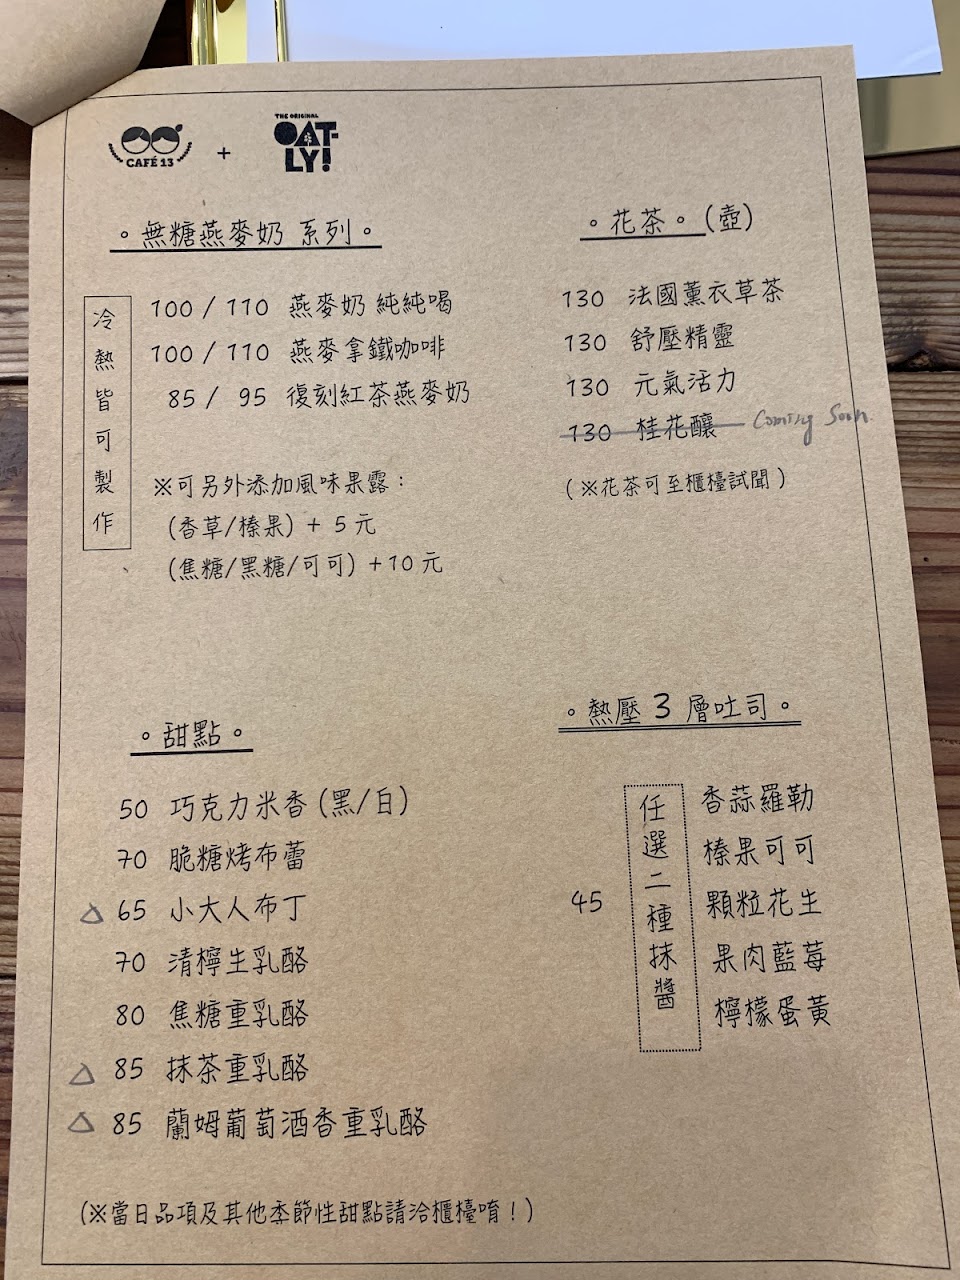 CAFÉ 13
+
THE ORIGINAL
OAT-
LY!
。無糖燕麥奶 系列。
冷熱皆可製作
100 / 110 燕麥奶 純純喝
100 / 110 燕麥拿鐵咖啡
85 / 95 復刻紅茶燕麥奶
※可另外添加風味果露：
(香草/榛果) + 5 元
(焦糖/黑糖/可可) +10 元
。花茶。(壺)
130 法國薰衣草茶
130 舒壓精靈
130 元氣活力
130 桂花釀 Coming Soon.
(※花茶可至櫃檯試聞)
。甜點。
50 巧克力米香 (黑/白)
70 脆糖烤布蕾
△ 65 小大人布丁
70 清檸生乳酪
80 焦糖重乳酪
△ 85 抹茶重乳酪
△ 85 蘭姆葡萄酒香重乳酪
(※當日品項及其他季節性甜點請洽櫃檯唷！)
。熱壓 3 層吐司。
45
任選二種抹醬
香蒜羅勒
榛果可可
顆粒花生
果肉藍莓
檸檬蛋黃